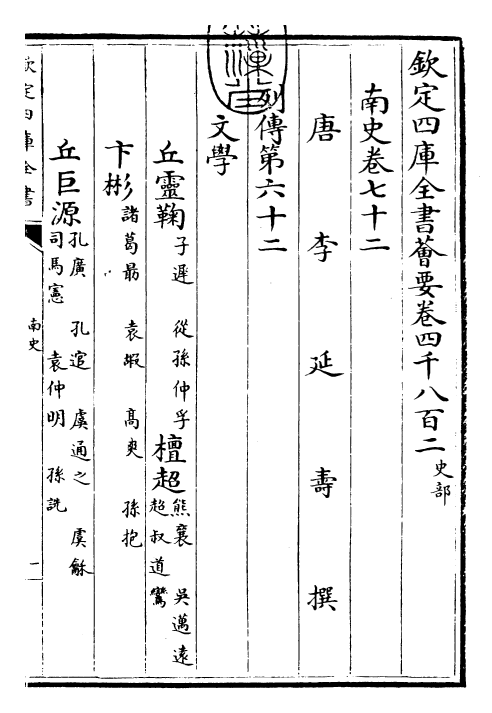 欽定四庫全書薈要卷四千八百二 史部
南史卷七十二
唐 李 延 壽 撰
列傳第六十二
文學
丘靈鞠 子遲 從孫仲孚 檀超 熊襄 吳邁遠 超叔道鸞
卞彬 諸葛勗 袁嘏 高爽 孫抱
丘巨源 孔廣 孔逭 虞通之 虞龢 司馬憲 袁仲明 孫詵
欽定四庫全書
南史